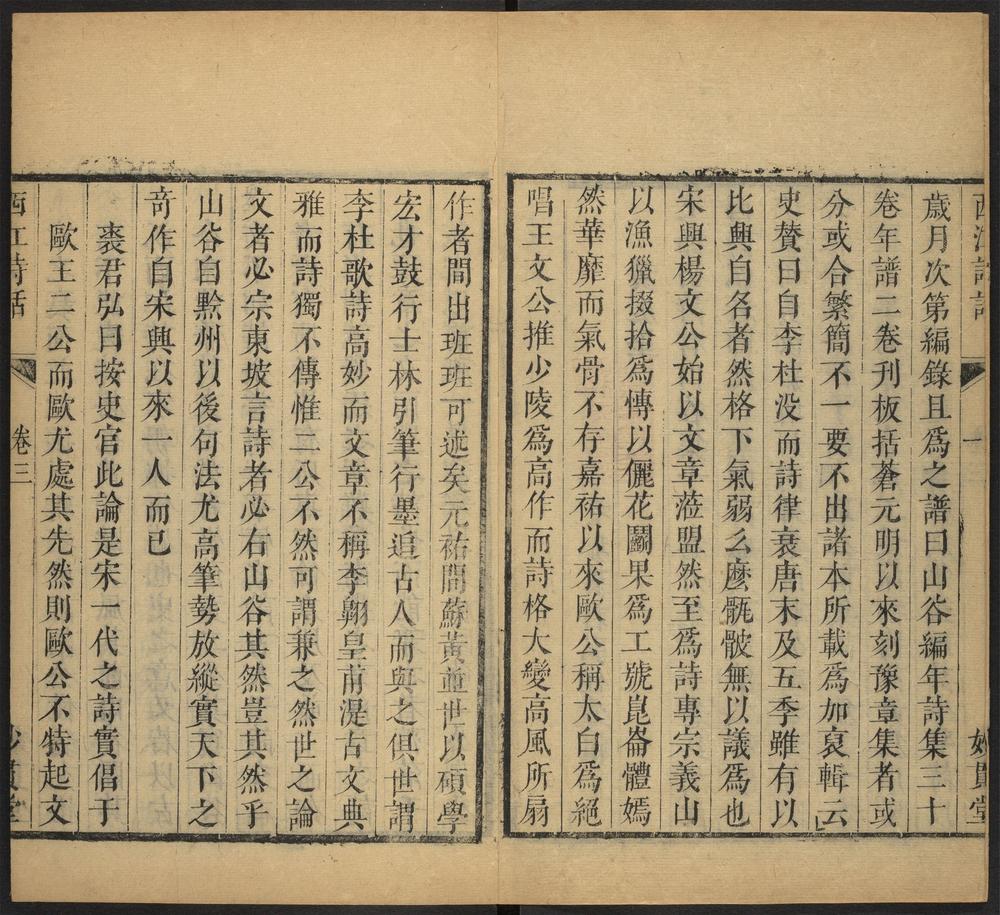 西江詩話
一
妙貫堂
歲月次第編錄且爲之譜曰山谷編年詩集三十
卷年譜二卷刊板括蒼元明以來刻豫章集者或
分或合繁簡不一要不出諸本所載爲加裒輯云
史賛曰自李杜没而詩律衰唐末及五季雖有以
比興自名者然格下氣弱么麽骩骳無以議爲也
宋興楊文公始以文章蒞盟然至爲詩專宗義山
以漁獵掇拾爲慱以儷花鬬果爲工號崑崙體嫣
然華靡而氣骨不存嘉祐以來歐公稱太白爲絕
唱王文公推少陵爲高作而詩格大變高風所扇
作者間出班班可述矣元祐間蘇黃並世以碩學
宏才鼓行士林引筆行墨追古人而與之俱世謂
李杜歌詩高妙而文章不稱李翺皇甫湜古文典
雅而詩獨不傳惟二公不然可謂兼之然世之論
文者必宗東坡言詩者必右山谷其然豈其然乎
山谷自黔州以後句法尤高筆勢放縱實天下之
竒作自宋興以來一人而已
裘君弘曰按史官此論是宋一代之詩實倡于
歐王二公而歐尤處其先然則歐公不特起文
西江詩話
卷三
妙貫堂